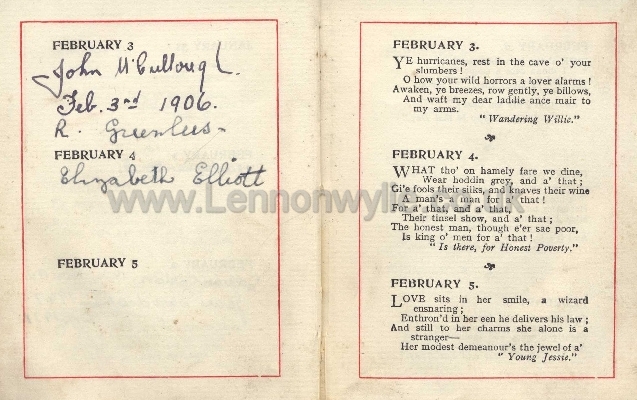 FEBRUARY 3
John McCullough.
Feb. 3rd 1906.
R. Greenlees
FEBRUARY 4
Elizabeth Elliott
FEBRUARY 5
FEBRUARY 3.
YE hurricanes, rest in the cave o' your
slumbers!
O how your wild horrors a lover alarms!
Awaken, ye breezes, row gently, ye billows,
And waft my dear laddie ance mair to
my arms.
"Wandering Willie."
FEBRUARY 4.
WHAT tho' on hamely fare we dine,
Wear hoddin grey, and a' that;
Gi'e fools their silks, and knaves their wine
A man's a man for a' that!
For a' that, and a' that,
Their tinsel show, and a' that;
The honest man, though e'er sae poor,
Is king o' men for a' that!
"Is there, for Honest Poverty."
FEBRUARY 5.
LOVE sits in her smile, a wizard
ensnaring;
Enthron'd in her een he delivers his law;
And still to her charms she alone is a
stranger—
Her modest demeanour's the jewel of a'
"Young Jessie."
www.Lennonwylie.co.uk